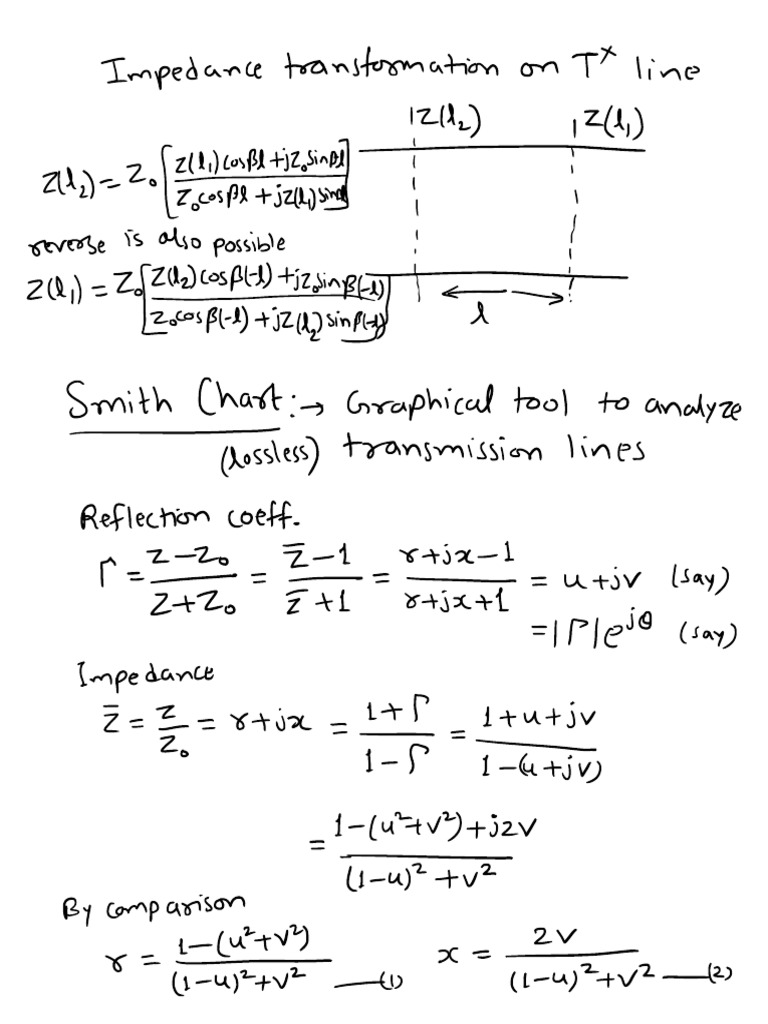 Impedance transformation on Tˣ line
Z(l₂) Z(l₁)
Z(l₂) = Z₀ [ (Z(l₁) cosβl + jZ₀ sinβl) / (Z₀ cosβl + jZ(l₁) sinβl) ]
reverse is also possible
Z(l₁) = Z₀ [ (Z(l₂) cosβ(-l) + jZ₀ sinβ(-l)) / (Z₀ cosβ(-l) + jZ(l₂) sinβ(-l)) ]
l
Smith Chart :→ Graphical tool to analyze
(lossless) transmission lines
Reflection coeff.
Γ = (Z-Z₀)/(Z+Z₀) = (z̄-1)/(z̄+1) = (r+jx-1)/(r+jx+1) = u+jv (say)
= |Γ|e^{jθ} (say)
Impedance
z̄ = Z/Z₀ = r+jx = (1+Γ)/(1-Γ) = (1+u+jv)/(1-(u+jv))
= (1-(u²+v²)+j2v)/((1-u)²+v²)
By comparison
r = (1-(u²+v²))/((1-u)²+v²) —(1) x = 2v/((1-u)²+v²) —(2)